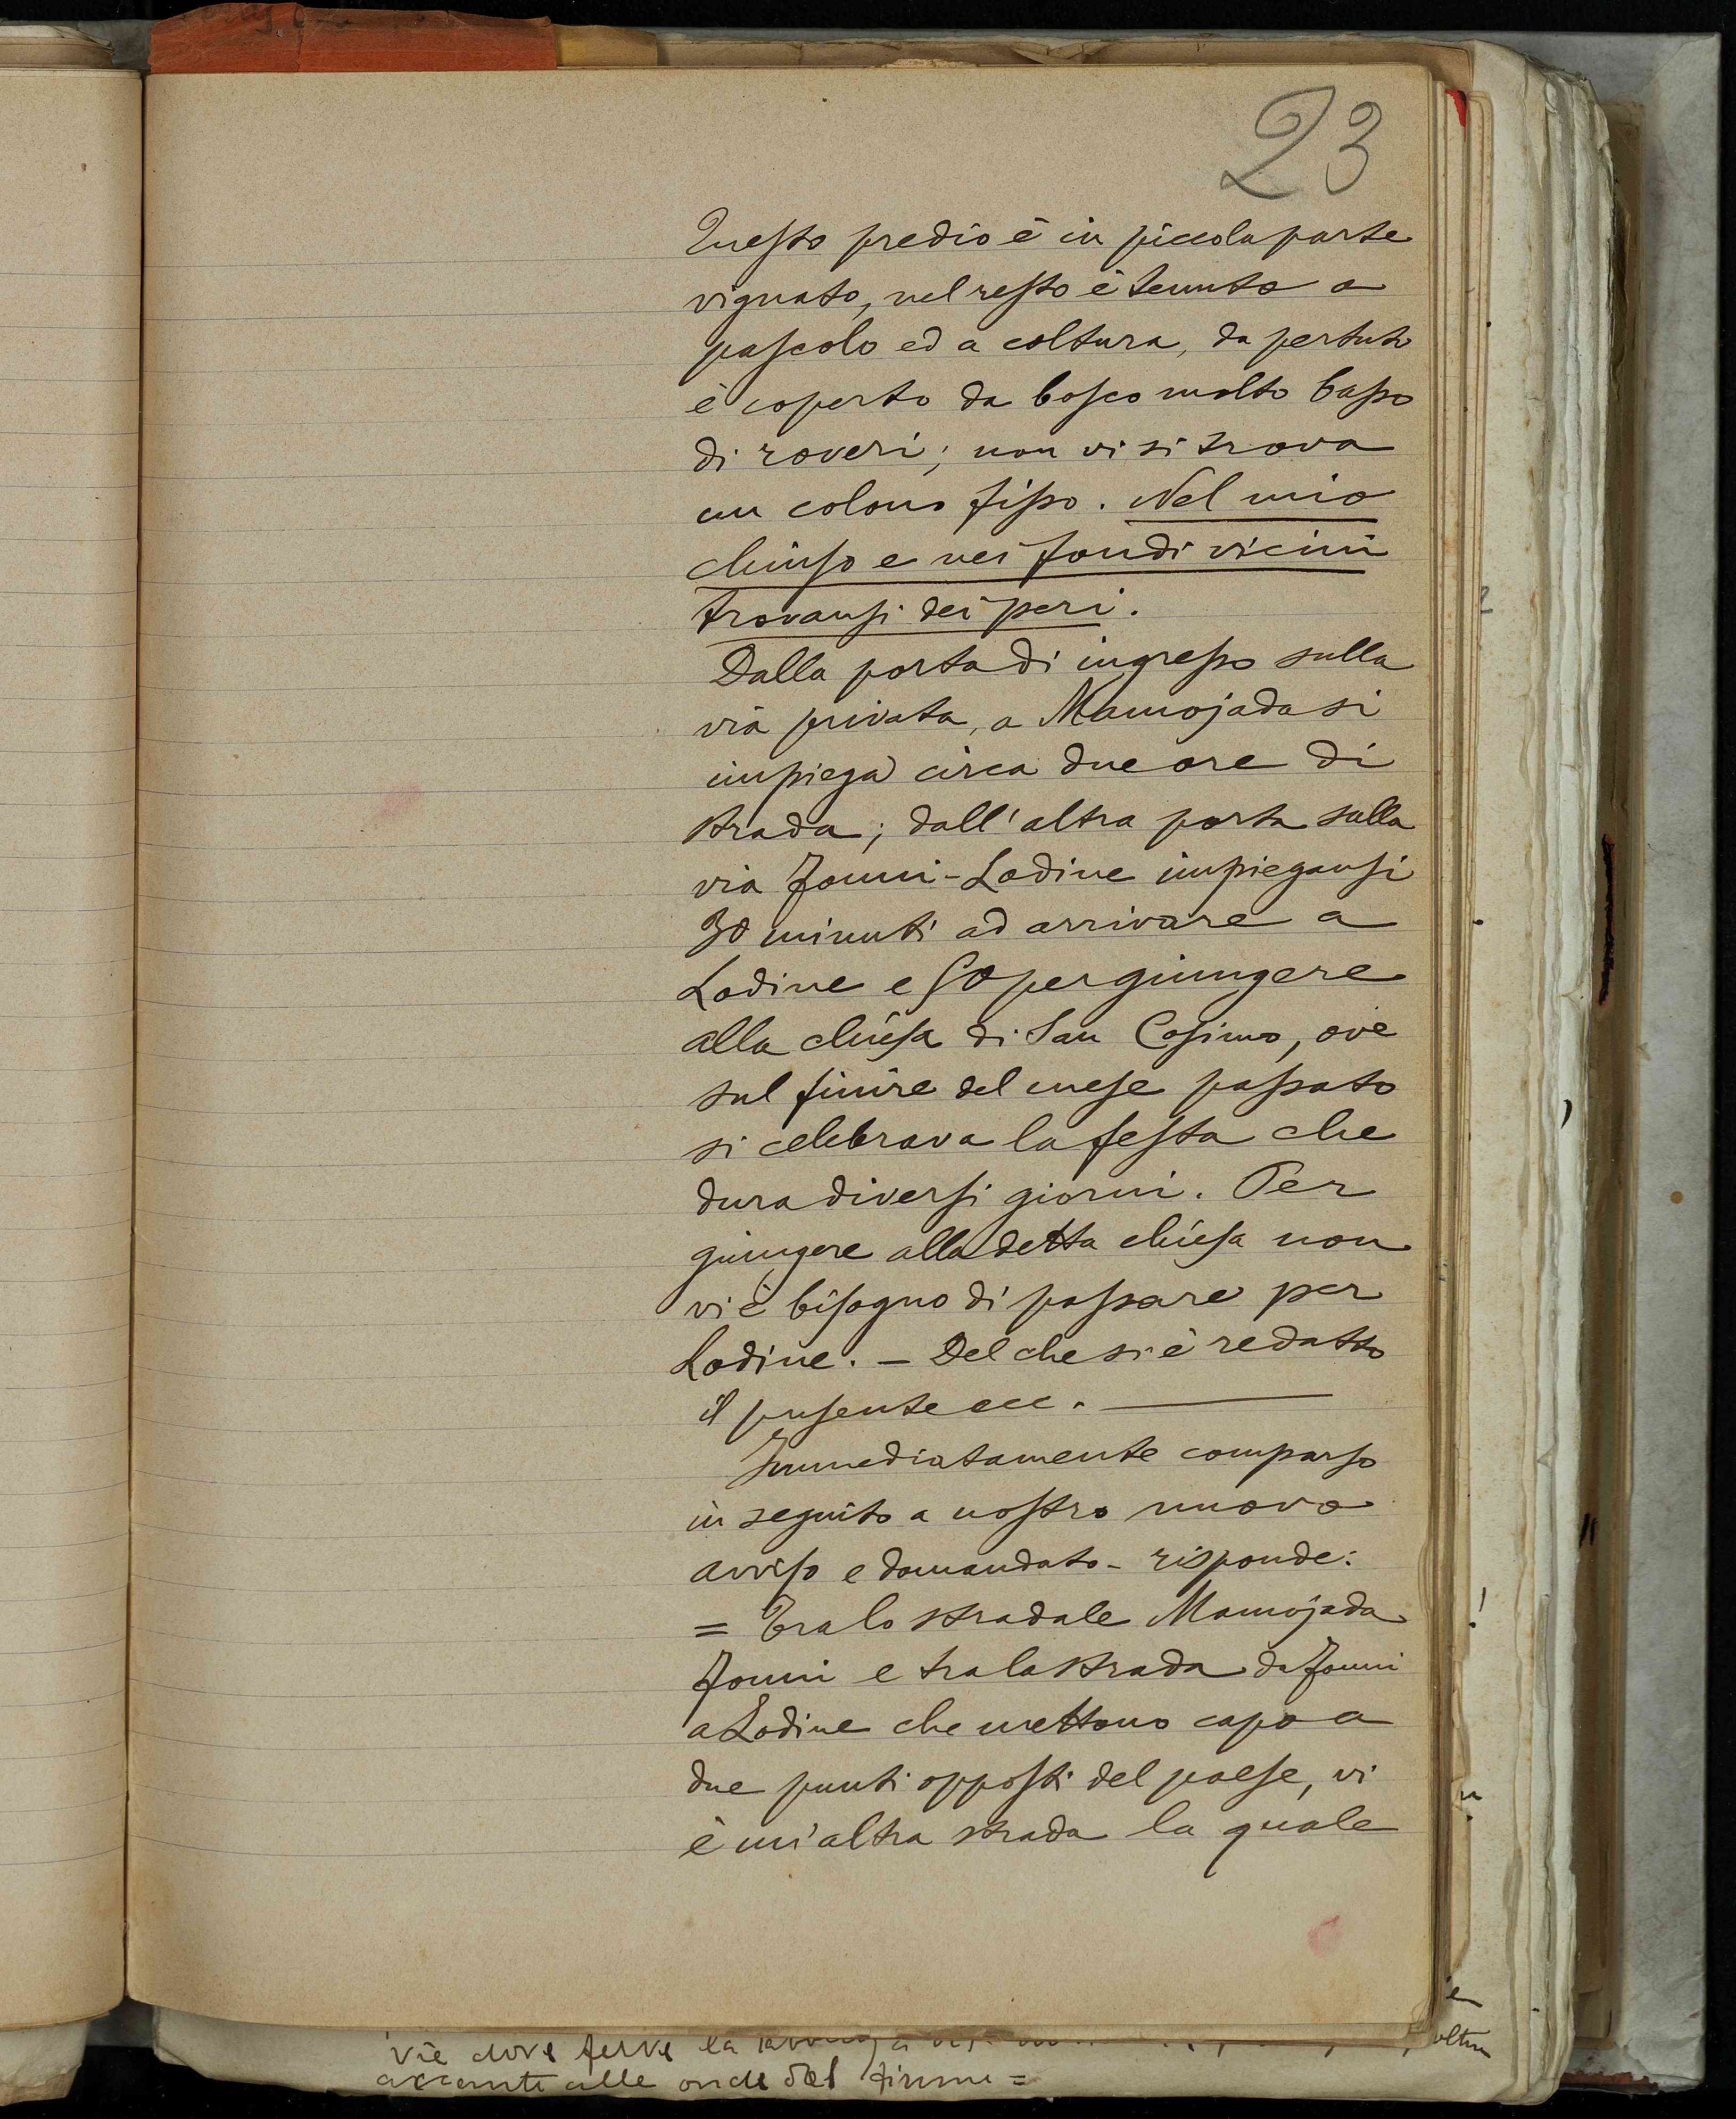 23
Questo predio è in piccola parte
vignato, nel resto è tenuto a
pascolo ed a coltura, da pertutto
è coperto da bosco molto basso
di roveri; non vi si trova
un colono fisso. Nel mio
chiuso e nei fondi vicini
trovansi dei peri.
Dalla porta di ingresso sulla
via privata, a Mamojada si
impiega circa due ore di
strada; dall'altra porta sulla
via Fonni-Lodine impiegansi
30 minuti ad arrivare a
Lodine e 50 per giungere
alla chiesa di San Cosimo, ove
sul finire del mese passato
si celebrava la festa che
dura diversi giorni. Per
giungere alla detta chiesa non
vi è bisogno di passare per
Lodine. - Del che si è redatto
il presente ecc.
Immediatamente comparso
in seguito a nostro nuovo
avviso e domandato - risponde:
= Tra lo stradale Mamojada
Fonni e tra la strada da Fonni
a Lodine che mettono capo a
due punti opposti del paese, vi
è un'altra strada la quale
vie dove ferve la
alle onde del fiume =